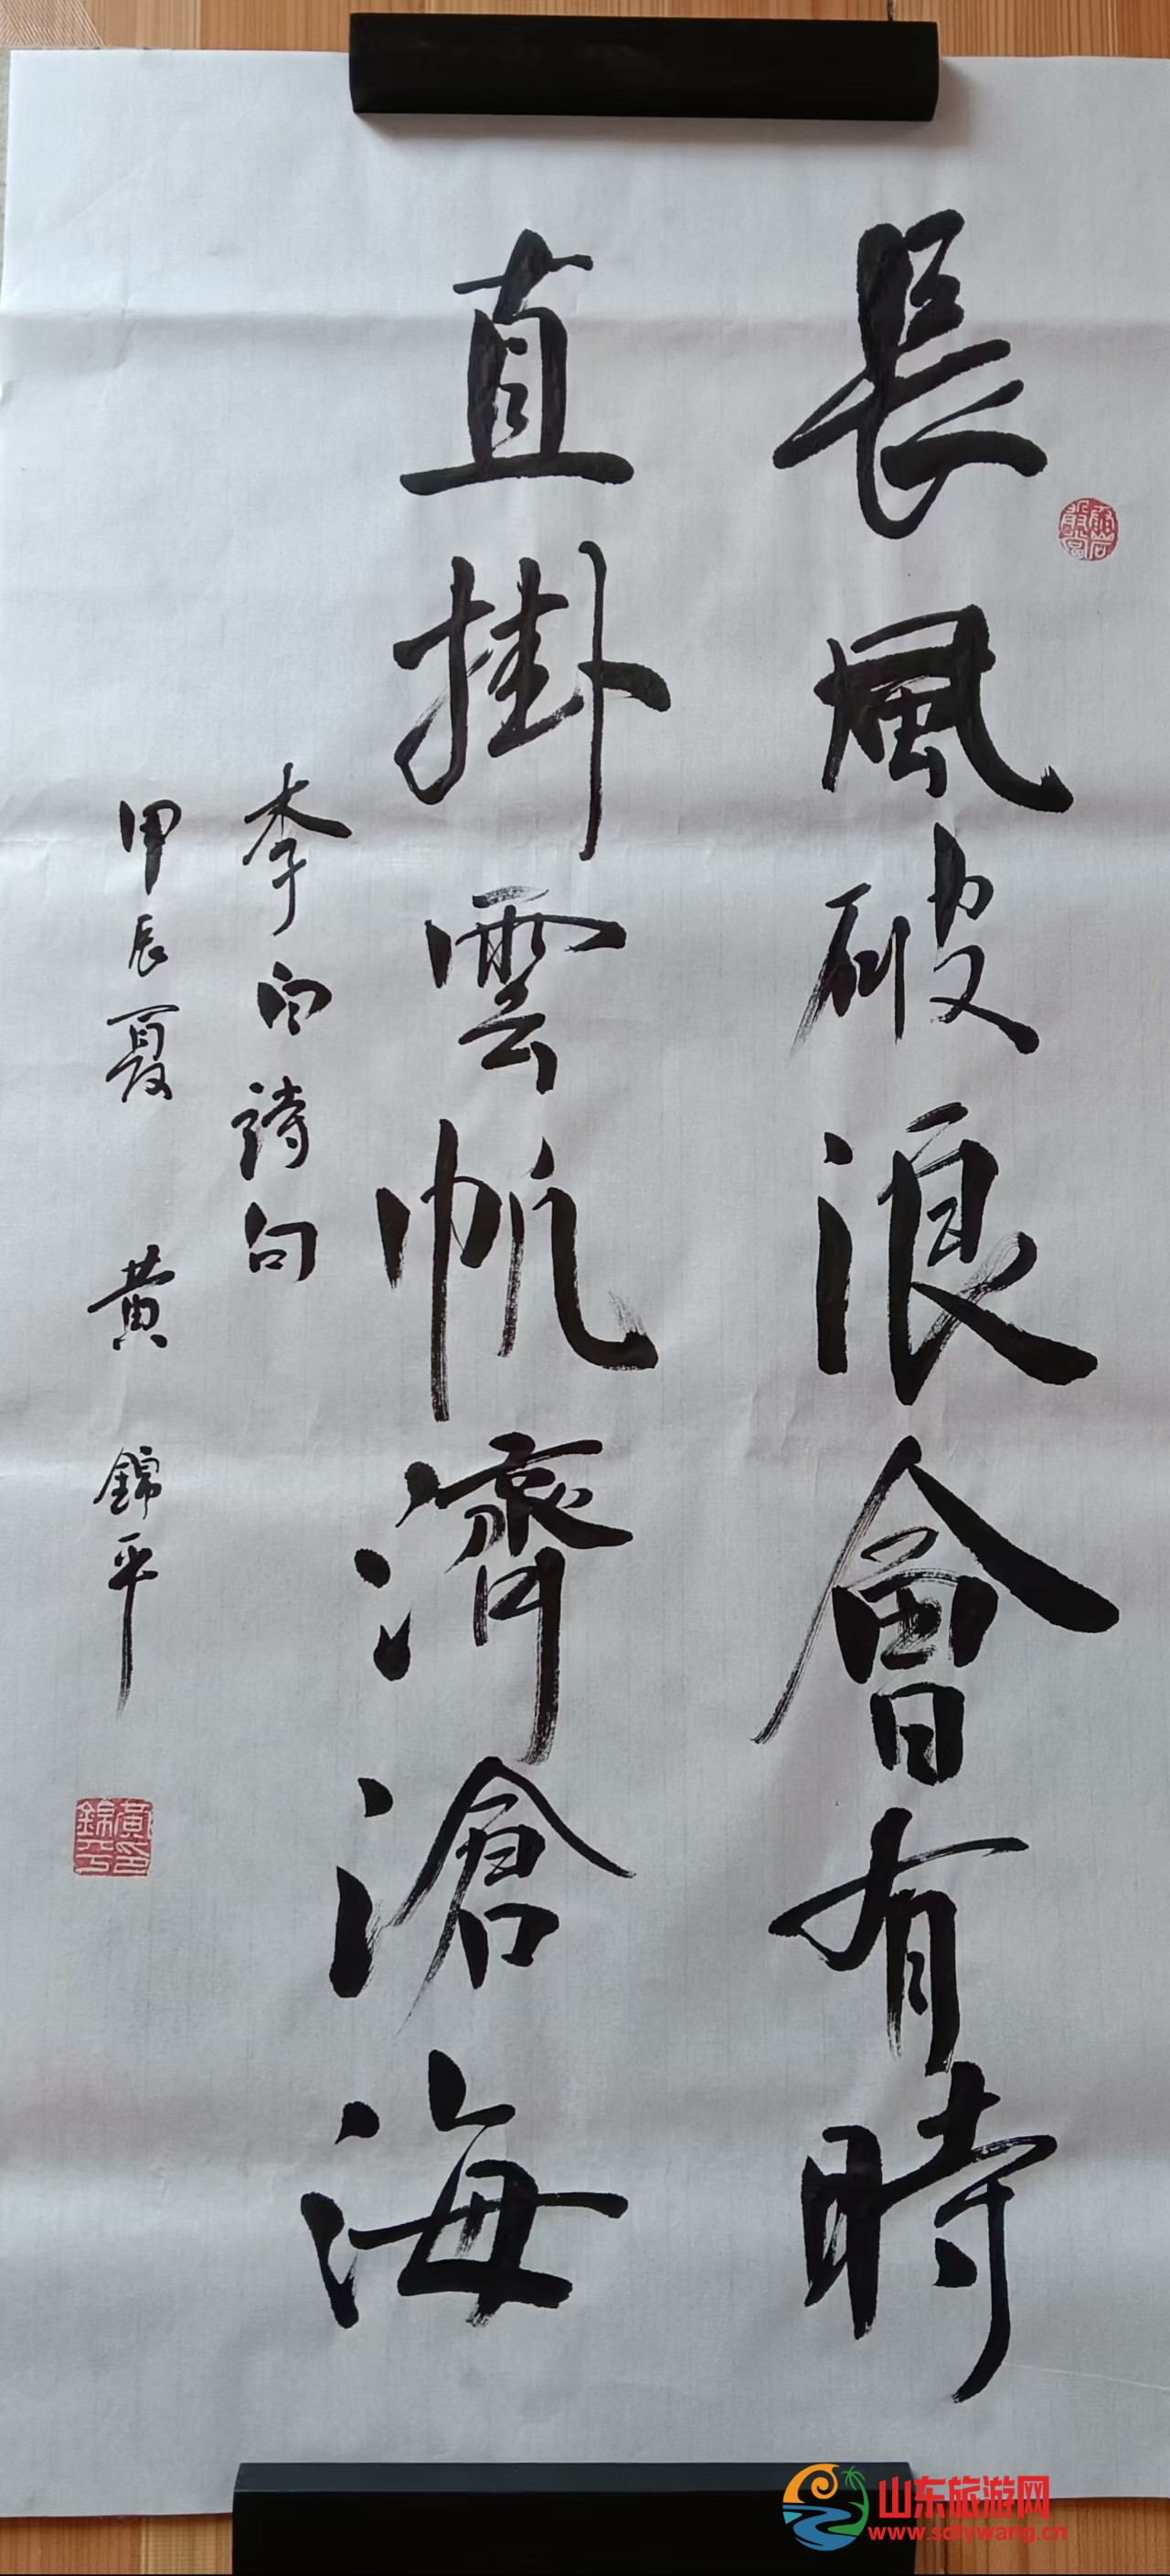 長風破浪會有時
直掛雲帆濟滄海
李白詩句
甲辰夏 黄錦平
黃錦平印
山东旅游网
www.sdlywang.cn